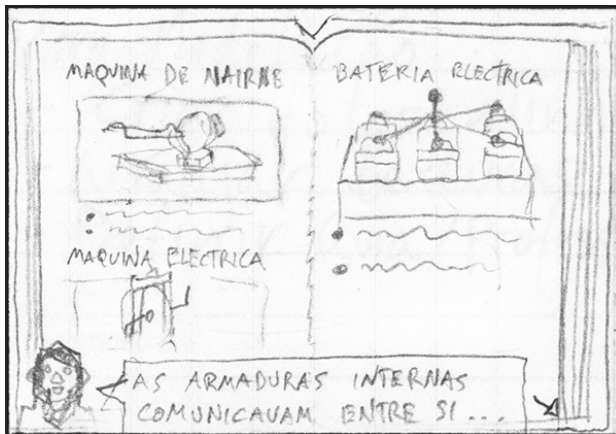 MAQUINA DE NAIRNE
BATERIA ELECTRICA
MAQUINA ELECTRICA
AS ARMADURAS INTERNAS
COMUNICAVAM ENTRE SI...